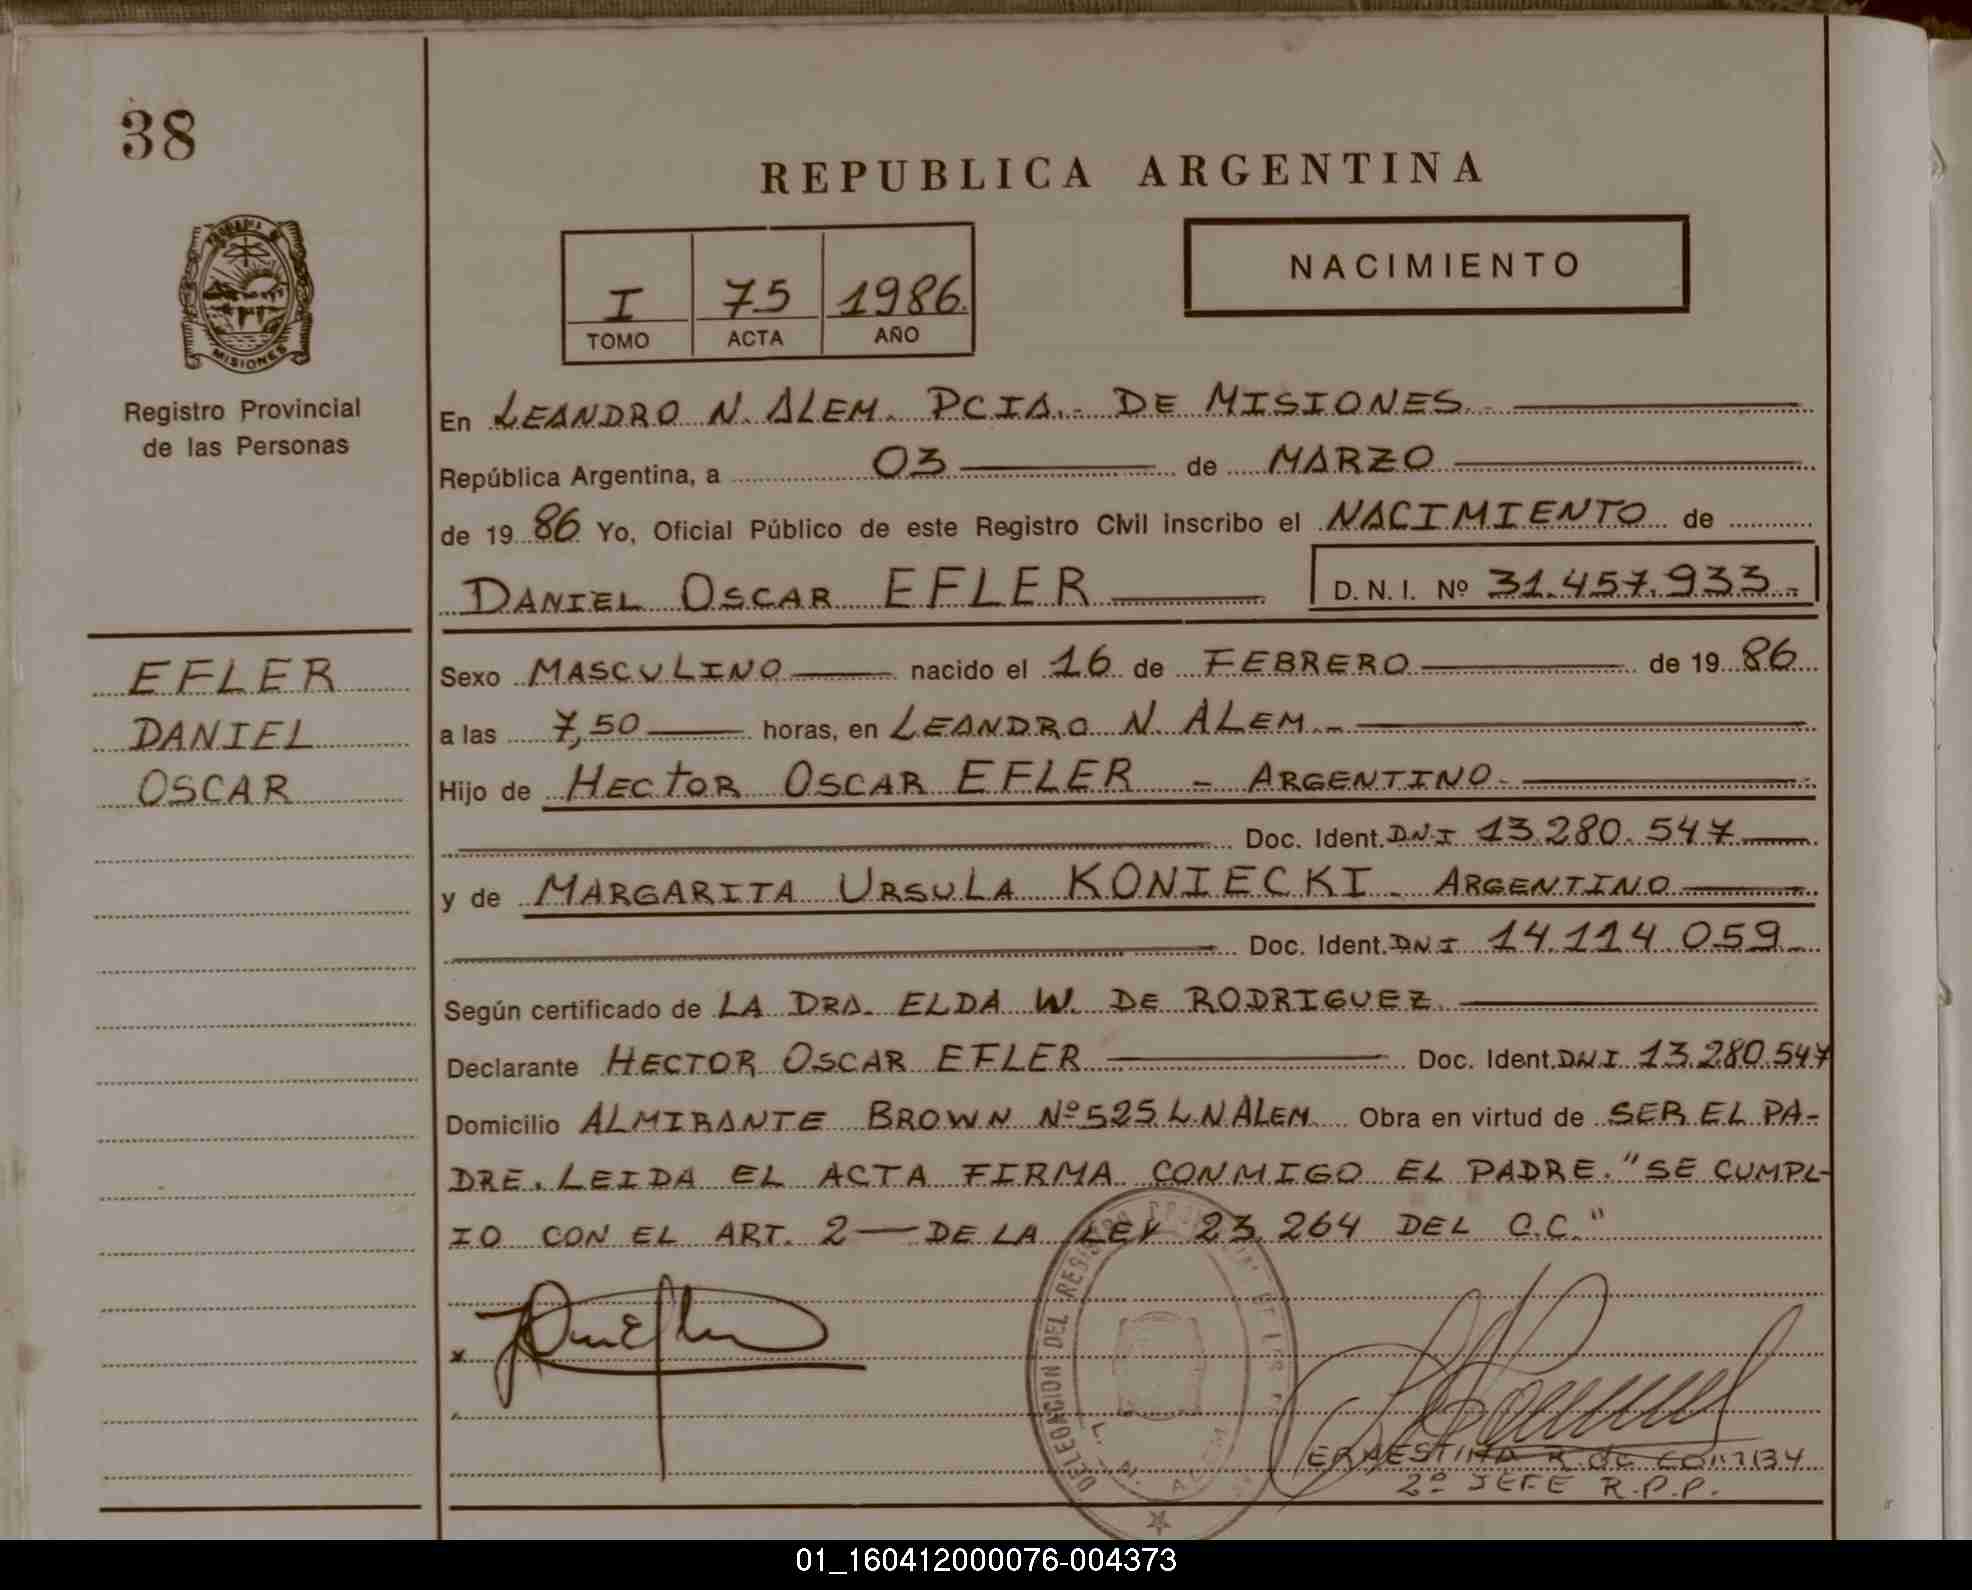 38
REPUBLICA ARGENTINA
I 75 1986.
TOMO ACTA AÑO
NACIMIENTO
MISIONES
Registro Provincial
de las Personas
En LEANDRO N. ALEM. PCIA.- DE MISIONES.-
República Argentina, a 03 de MARZO
de 1986 Yo, Oficial Público de este Registro Civil inscribo el NACIMIENTO de
DANIEL OSCAR EFLER D. N. I. Nº 31.457.933.-
EFLER
DANIEL
OSCAR
Sexo MASCULINO nacido el 16 de FEBRERO de 1986
a las 7,50 horas, en LEANDRO N. ALEM.-
Hijo de HECTOR OSCAR EFLER - ARGENTINO-
Doc. Ident. DNI 13.280.547
y de MARGARITA URSULA KONIECKI - ARGENTINO
Doc. Ident. DNI 14.114.059
Según certificado de LA DRA. ELDA W. DE RODRIGUEZ.
Declarante HECTOR OSCAR EFLER Doc. Ident. DNI 13.280.547
Domicilio ALMIRANTE BROWN Nº 525 L.N.ALEM. Obra en virtud de SER EL PA-
DRE. LEIDA EL ACTA FIRMA CONMIGO EL PADRE. "SE CUMPL-
IO CON EL ART. 2 — DE LA LEY 23.264 DEL C.C."
DELEGACION DEL REGISTRO
L. N. ALEM
ERNESTINA R. de
2º JEFE R.P.P.
01_160412000076-004373